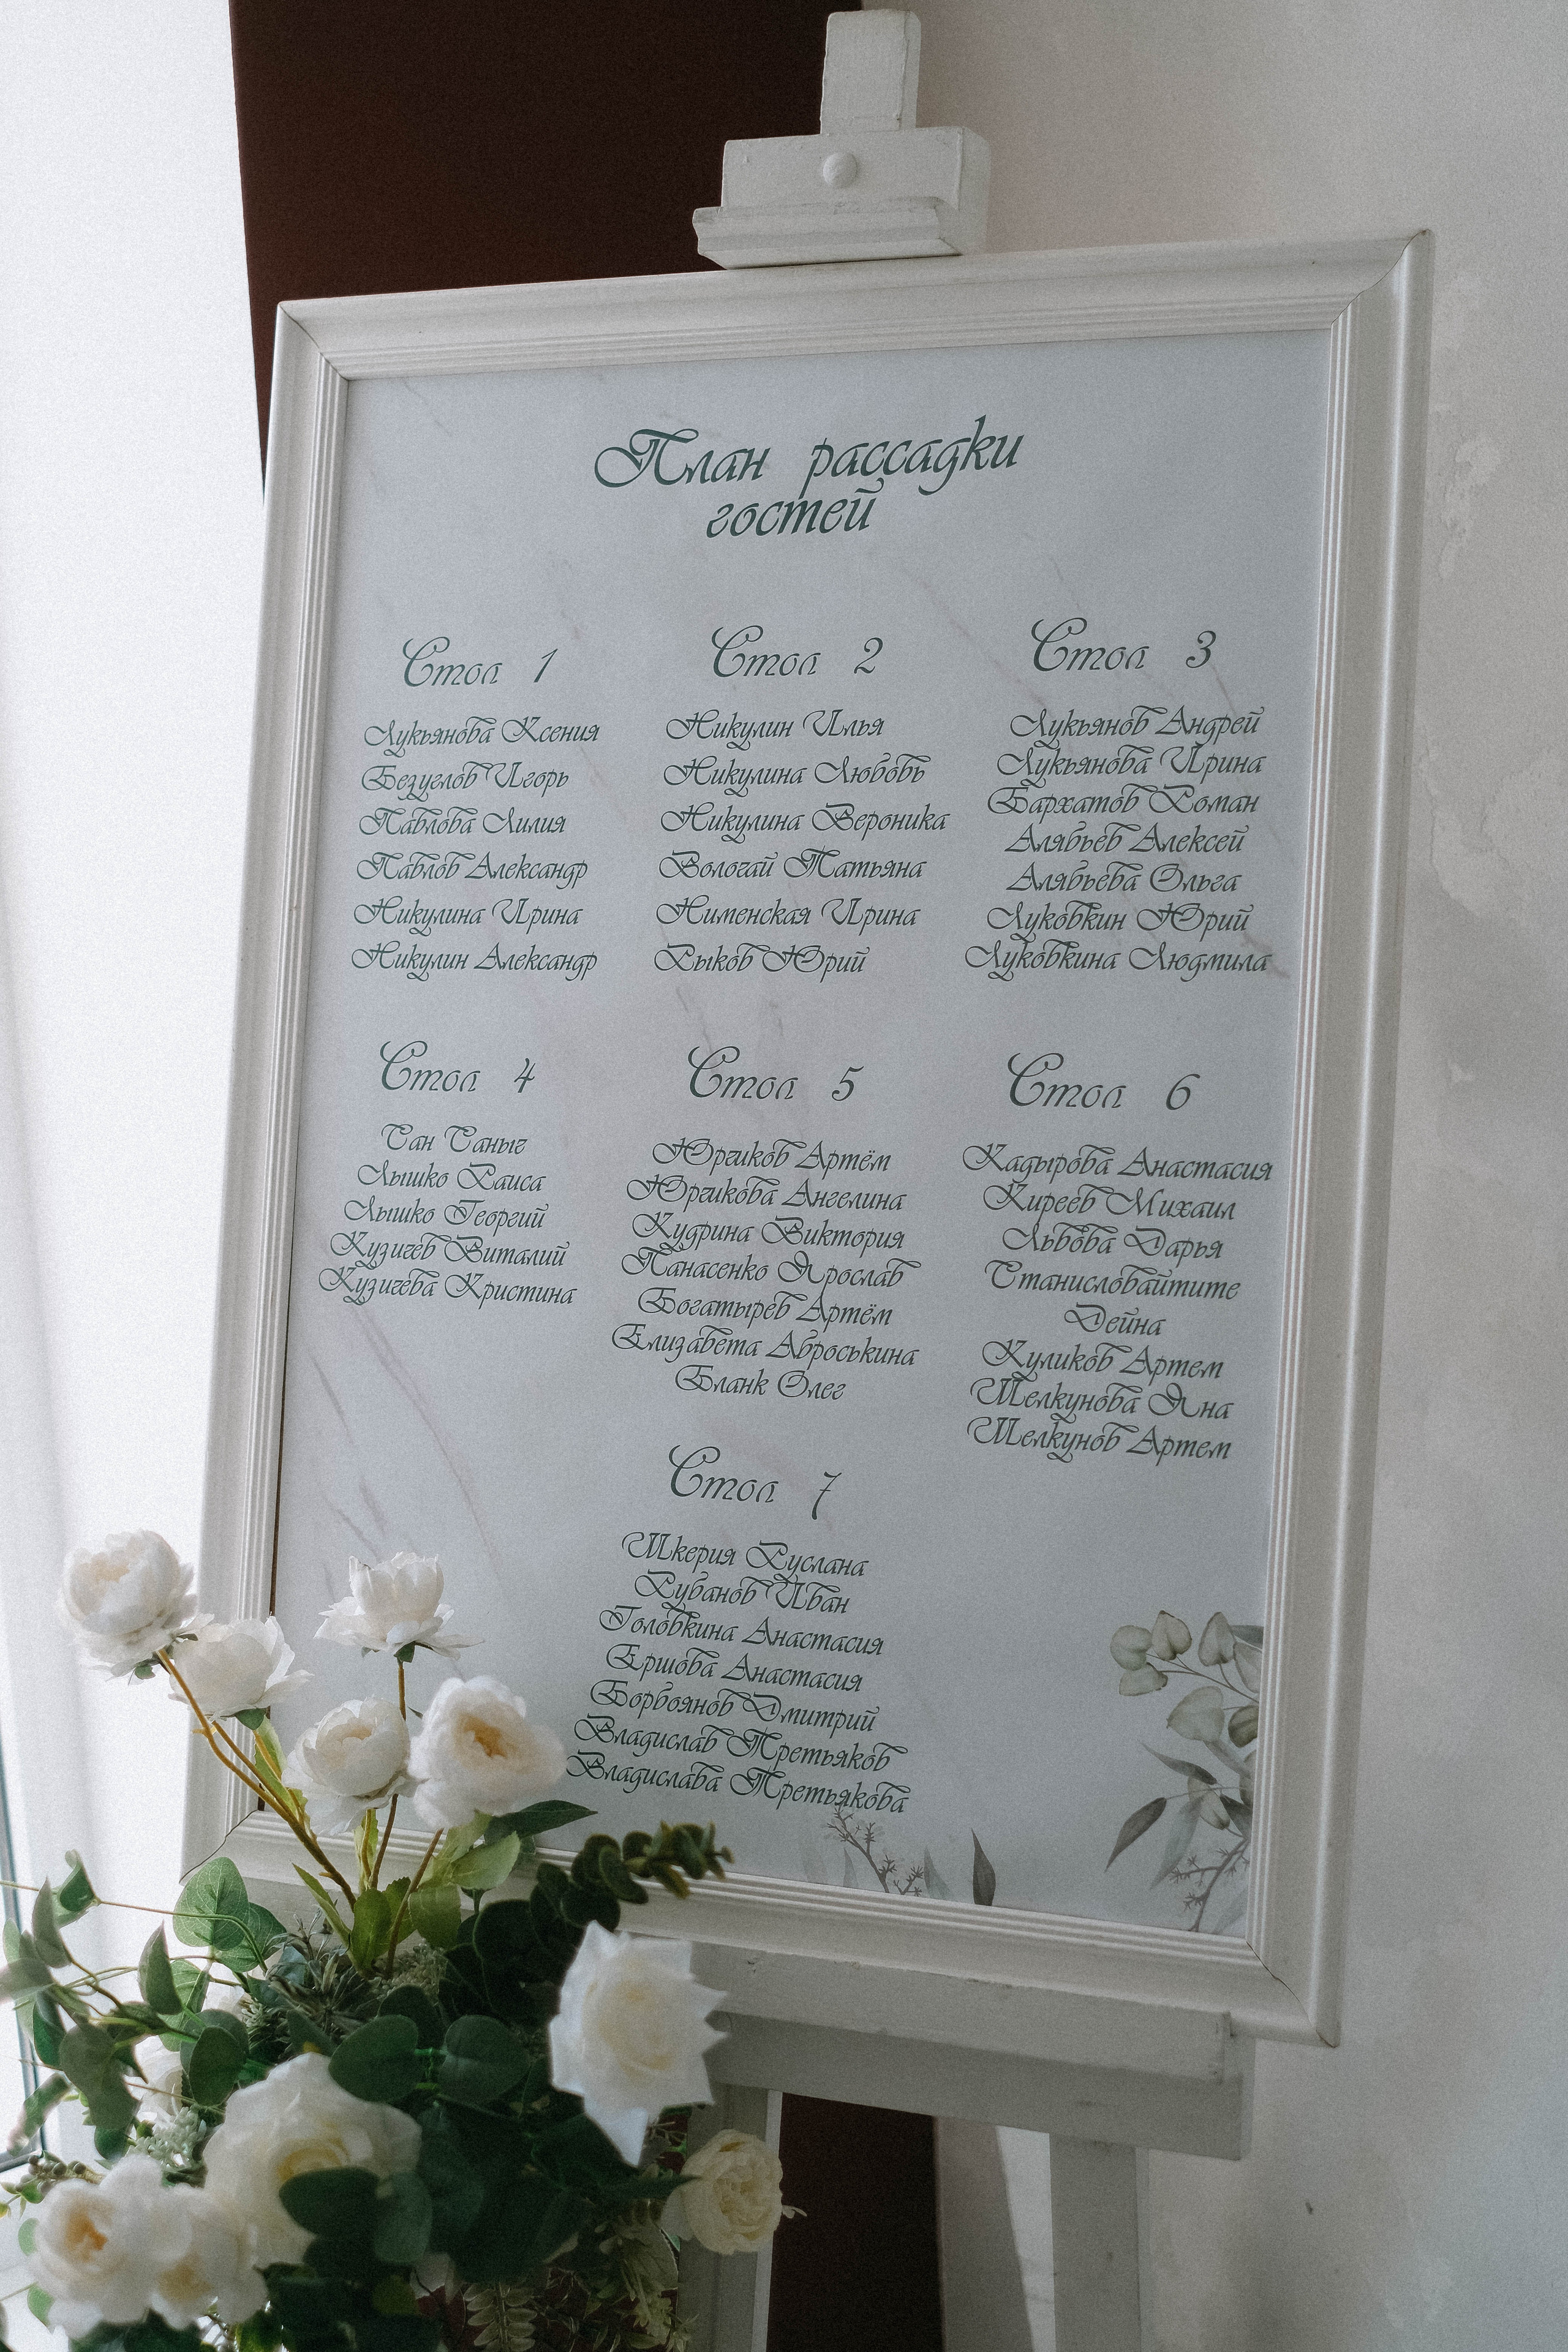 План рассадки
гостей
Стол 1
Лукьянова Ксения
Безуглов Игорь
Павлова Лилия
Павлов Александр
Никулина Ирина
Никулин Александр
Стол 2
Никулин Илья
Никулина Любовь
Никулина Вероника
Вологай Татьяна
Нименская Ирина
Рыков Юрий
Стол 3
Лукьянов Андрей
Лукьянова Ирина
Бархатов Роман
Алябьев Алексей
Алябьева Ольга
Луковкин Юрий
Луковкина Людмила
Стол 4
Сан Саныч
Лышко Раиса
Лышко Георгий
Кузичев Виталий
Кузичева Кристина
Стол 5
Юрчиков Артём
Юрчикова Ангелина
Кудрина Виктория
Панасенко Ярослав
Богатырев Артём
Елизавета Аброськина
Бланк Олег
Стол 6
Кадырова Анастасия
Киреев Михаил
Львова Дарья
Станисловайтите
Дейна
Куликов Артем
Шелкунова Яна
Шелкунов Артем
Стол 7
Шкерия Руслана
Рубанов Иван
Головкина Анастасия
Ершова Анастасия
Борвоянов Дмитрий
Владислав Третьяков
Владислава Третьякова